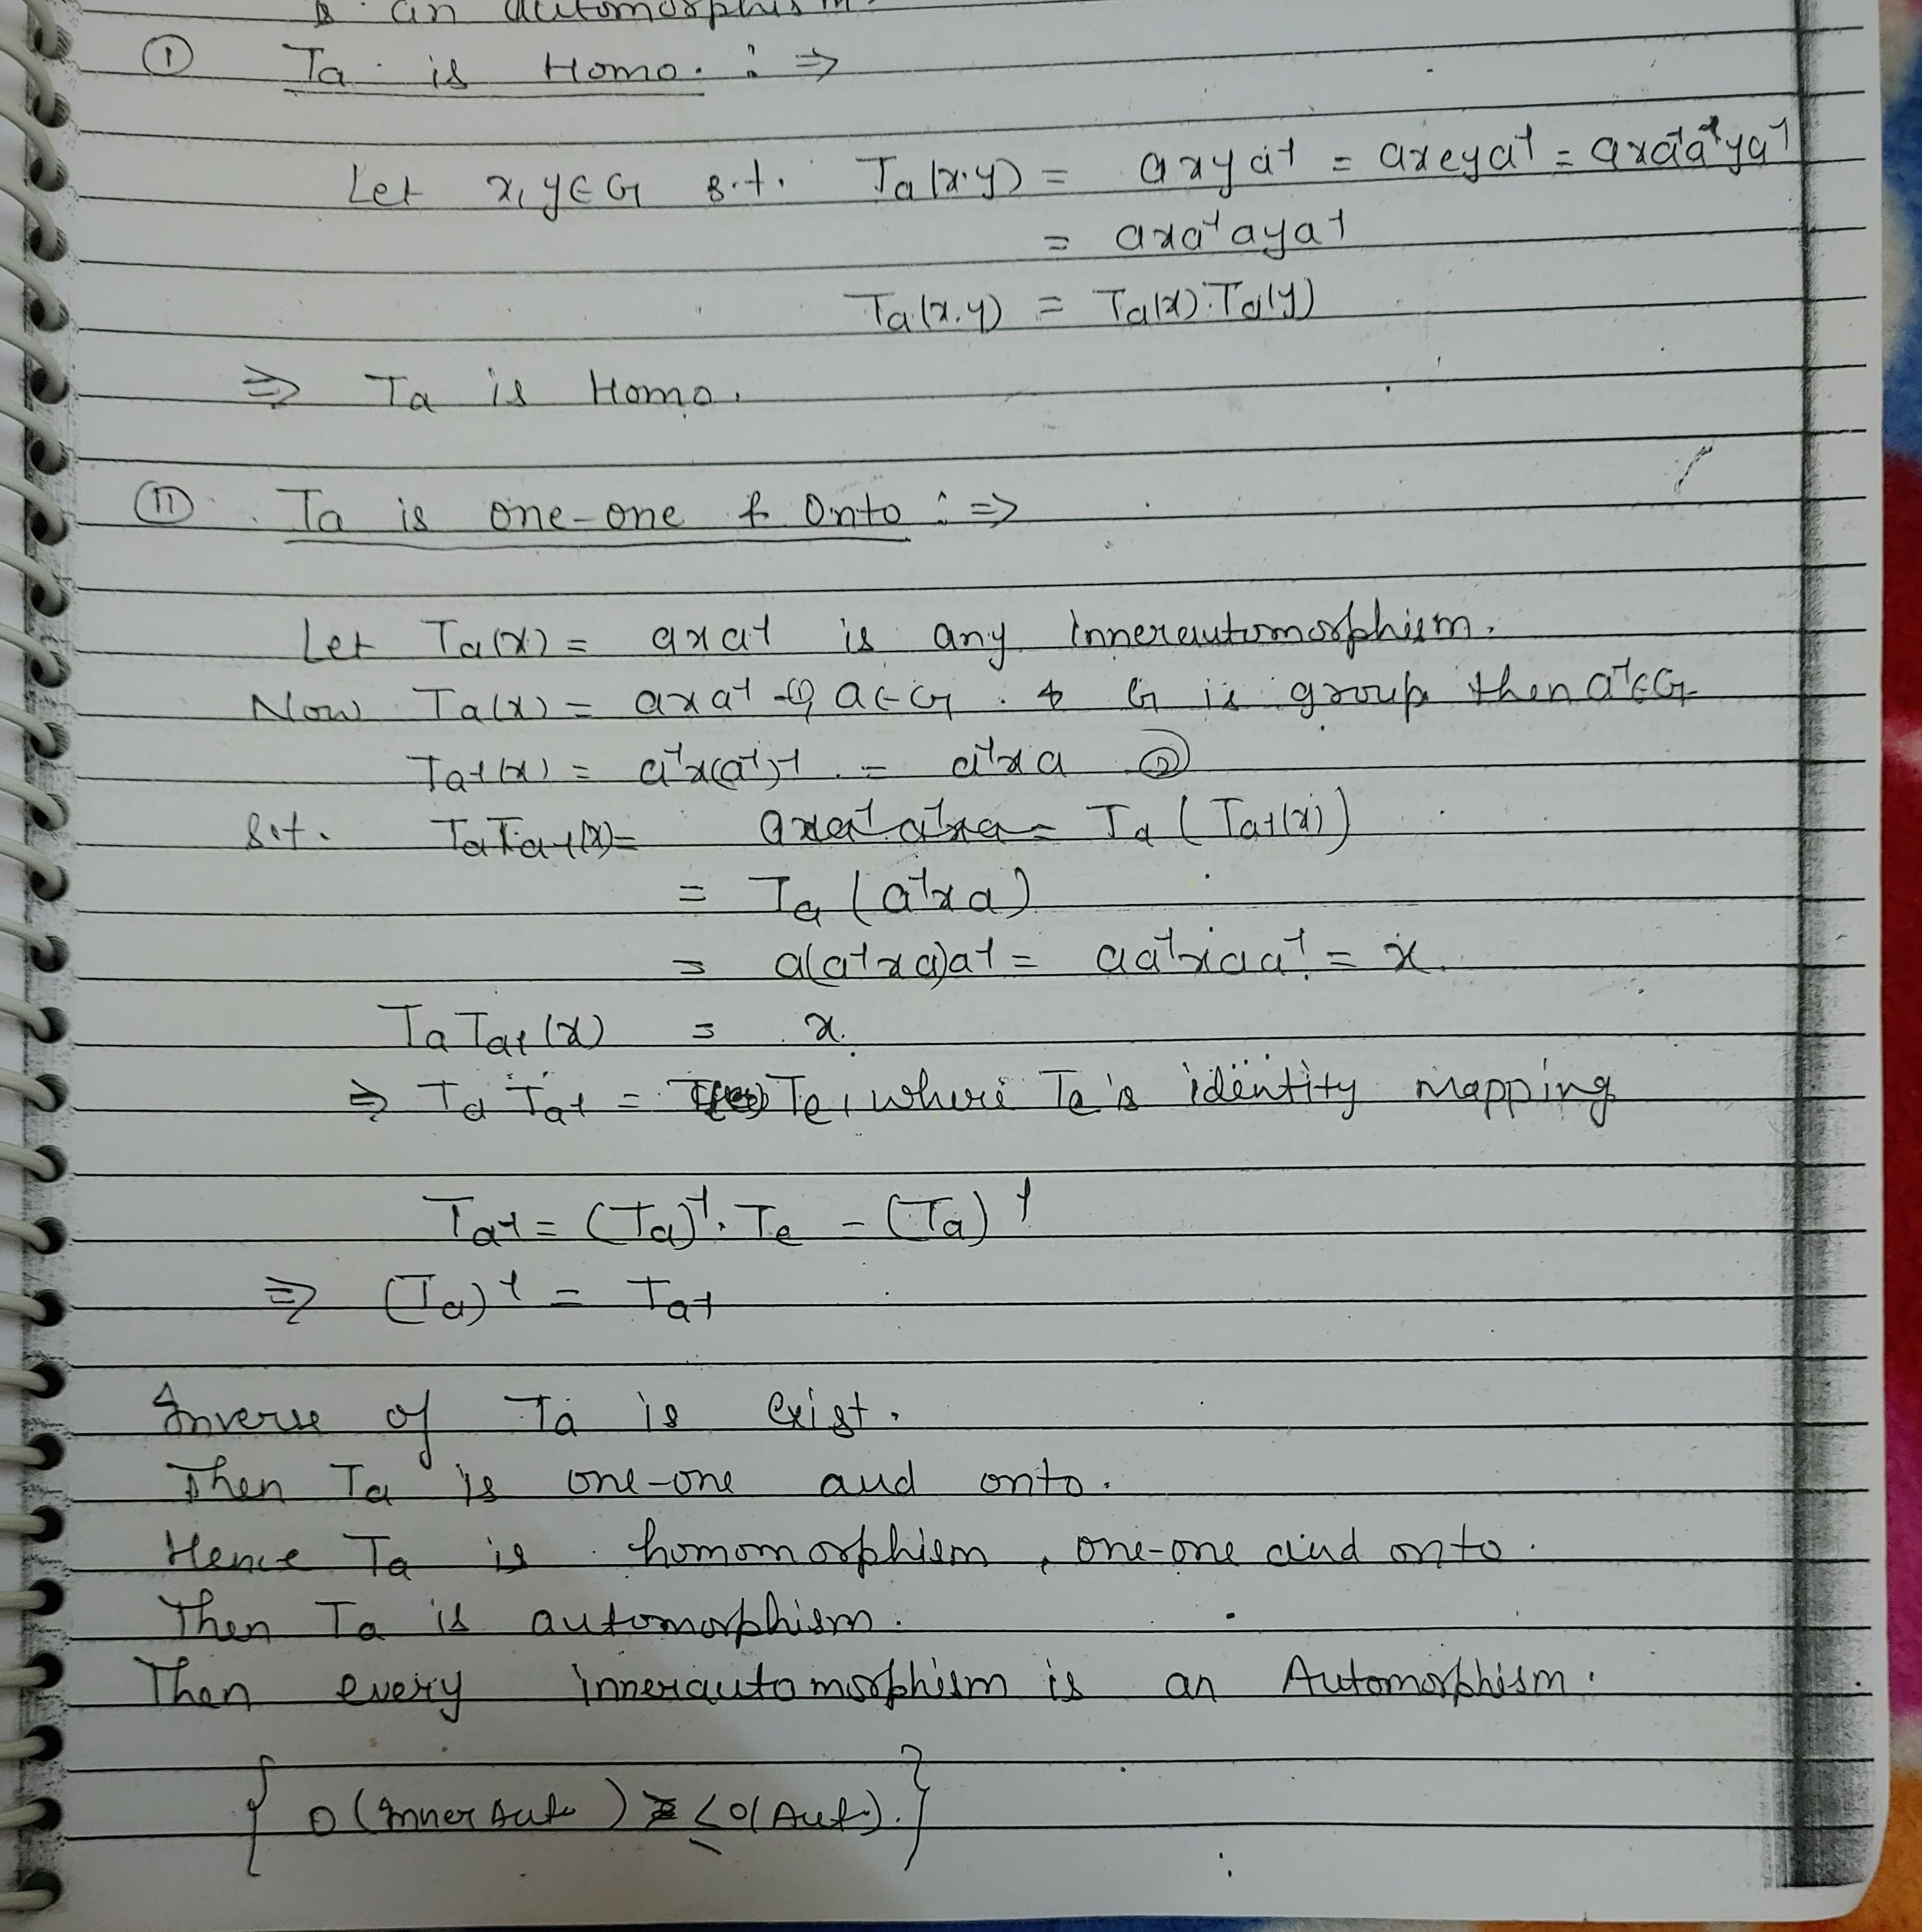 is an automorphism.
① Ta is Homo. : ⇒
Let x, y ∈ G s.t. Ta(x.y) = axya⁻¹ = axeya⁻¹ = axa⁻¹a⁻¹ya⁻¹
= axa⁻¹aya⁻¹
Ta(x.y) = Ta(x).Ta(y)
⇒ Ta is Homo.
⑪ Ta is one-one & Onto : ⇒
Let Ta(x) = axa⁻¹ is any innerautomorphism.
Now Ta(x) = axa⁻¹ -① a ∈ G. & G is group then a⁻¹∈G
Ta⁻¹(x) = a⁻¹x(a⁻¹)⁻¹ = a⁻¹xa ②
s.t. TaTa⁻¹(x) = axa⁻¹a⁻¹xa = Ta(Ta⁻¹(x))
= Ta(a⁻¹xa)
= a(a⁻¹xa)a⁻¹ = aa⁻¹xaa⁻¹ = x.
TaTa⁻¹(x) = x.
⇒ TaTa⁻¹ = Te, where Te is identity mapping
Ta⁻¹ = (Ta)⁻¹. Te = (Ta)⁻¹
⇒ (Ta)⁻¹ = Ta⁻¹
Inverse of Ta is exist.
Then Ta is one-one and onto.
Hence Ta is homomorphism, one-one and onto.
Then Ta is automorphism.
Then every innerautomorphism is an Automorphism.
{ O(Inner Auto) ≤ O(Aut). }